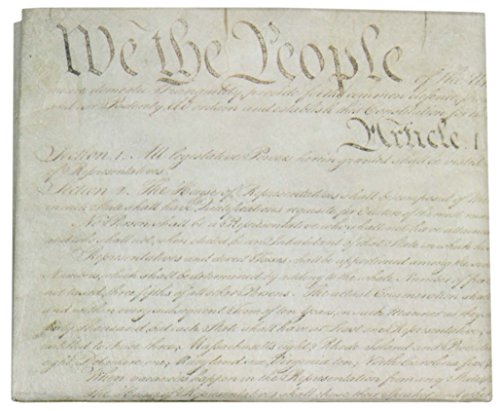 We the People of the
insure domestic Tranquility, provide for the common defence,
and our Posterity, do ordain and establish this Constitution for the
Article. I
Section. 1. All legislative Powers herein granted shall be vested
of Representatives.
Section. 2. The House of Representatives shall be composed of
in each State shall have Qualifications requisite for Electors of the most
No Person shall be a Representative who shall not have attained
and who shall not, when elected, be an Inhabitant of that State in which he
Representatives and direct Taxes shall be apportioned among the
Numbers, which shall be determined by adding to the whole Number of free
not taxed, three fifths of all other Persons. The actual Enumeration shall
and within every subsequent Term of ten Years, in such Manner as they
thirty Thousand, but each State shall have at Least one Representative;
entitled to chuse three, Massachusetts eight, Rhode Island and Providence
eight, Delaware one, Maryland six, Virginia ten, North Carolina five,
When vacancies happen in the Representation from any State,
The House of Representatives shall chuse their Speaker and